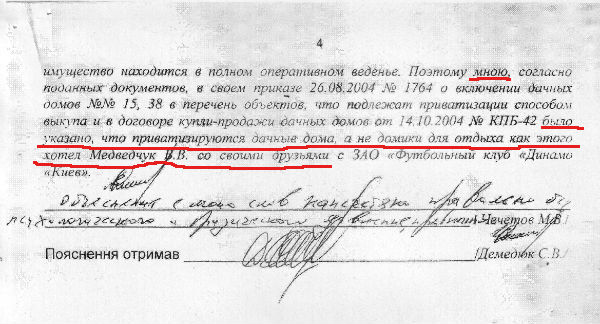 4
имущество находится в полном оперативном веденье. Поэтому мною, согласно
поданных документов, в своем приказе 26.08.2004 № 1764 о включении дачных
домов №№ 15, 38 в перечень объектов, что подлежат приватизации способом
выкупа и в договоре купли-продажи дачных домов от 14.10.2004 № КПБ-42 было
указано, что приватизируются дачные дома, а не домики для отдыха как этого
хотел Медведчук В.В. со своими друзьями с ЗАО «Футбольный клуб «Динамо
«Киев».
Объяснение с моих слов напечатано правильно без
психологического и физического /Чечетов М.В./
Пояснення отримав /Демедюк С.В./